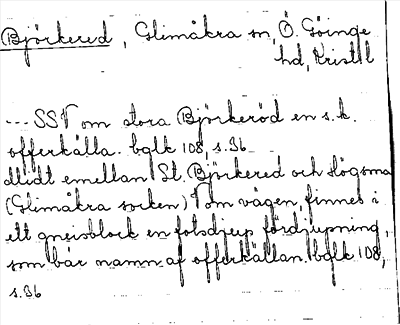 Björkered, Glimåkra sn, Ö. Göinge
hd, Krist. l
--- SSV om stora Björkeröd en s.k.
offerkälla. bglk 108, s. 36
Midt emellan St. Björkered och Högsma
(Glimåkra socken) V om vägen finnes i
ett gneisblock en fotsdjup fördjupning,
som bär namn af offerkällan. bglk 108,
s. 36